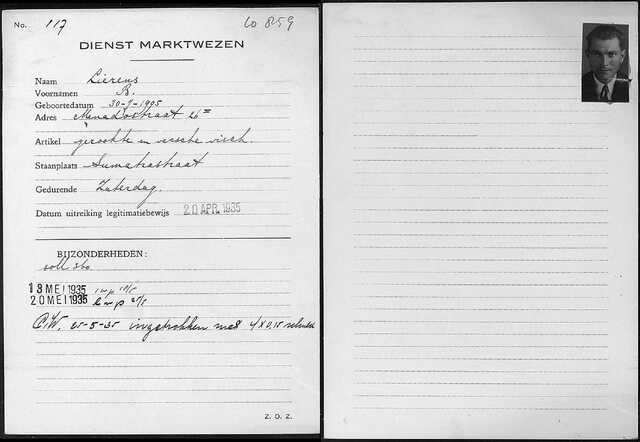 No. 117
60 859
DIENST MARKTWEZEN
Naam Lierens
Voornamen B.
Geboortedatum 30-9-1905
Adres Menadostraat 26
Artikel gerookte en versche visch.
Staanplaats Sumatrastraat
Gedurende Zaterdag.
Datum uitreiking legitimatiebewijs 20 APR. 1935
BIJZONDERHEDEN:
13 MEI 1935
20 MEI 1935
C.W. 25-5-35 ingetrokken met 4 x 0,15 schuld
Z. O. Z.